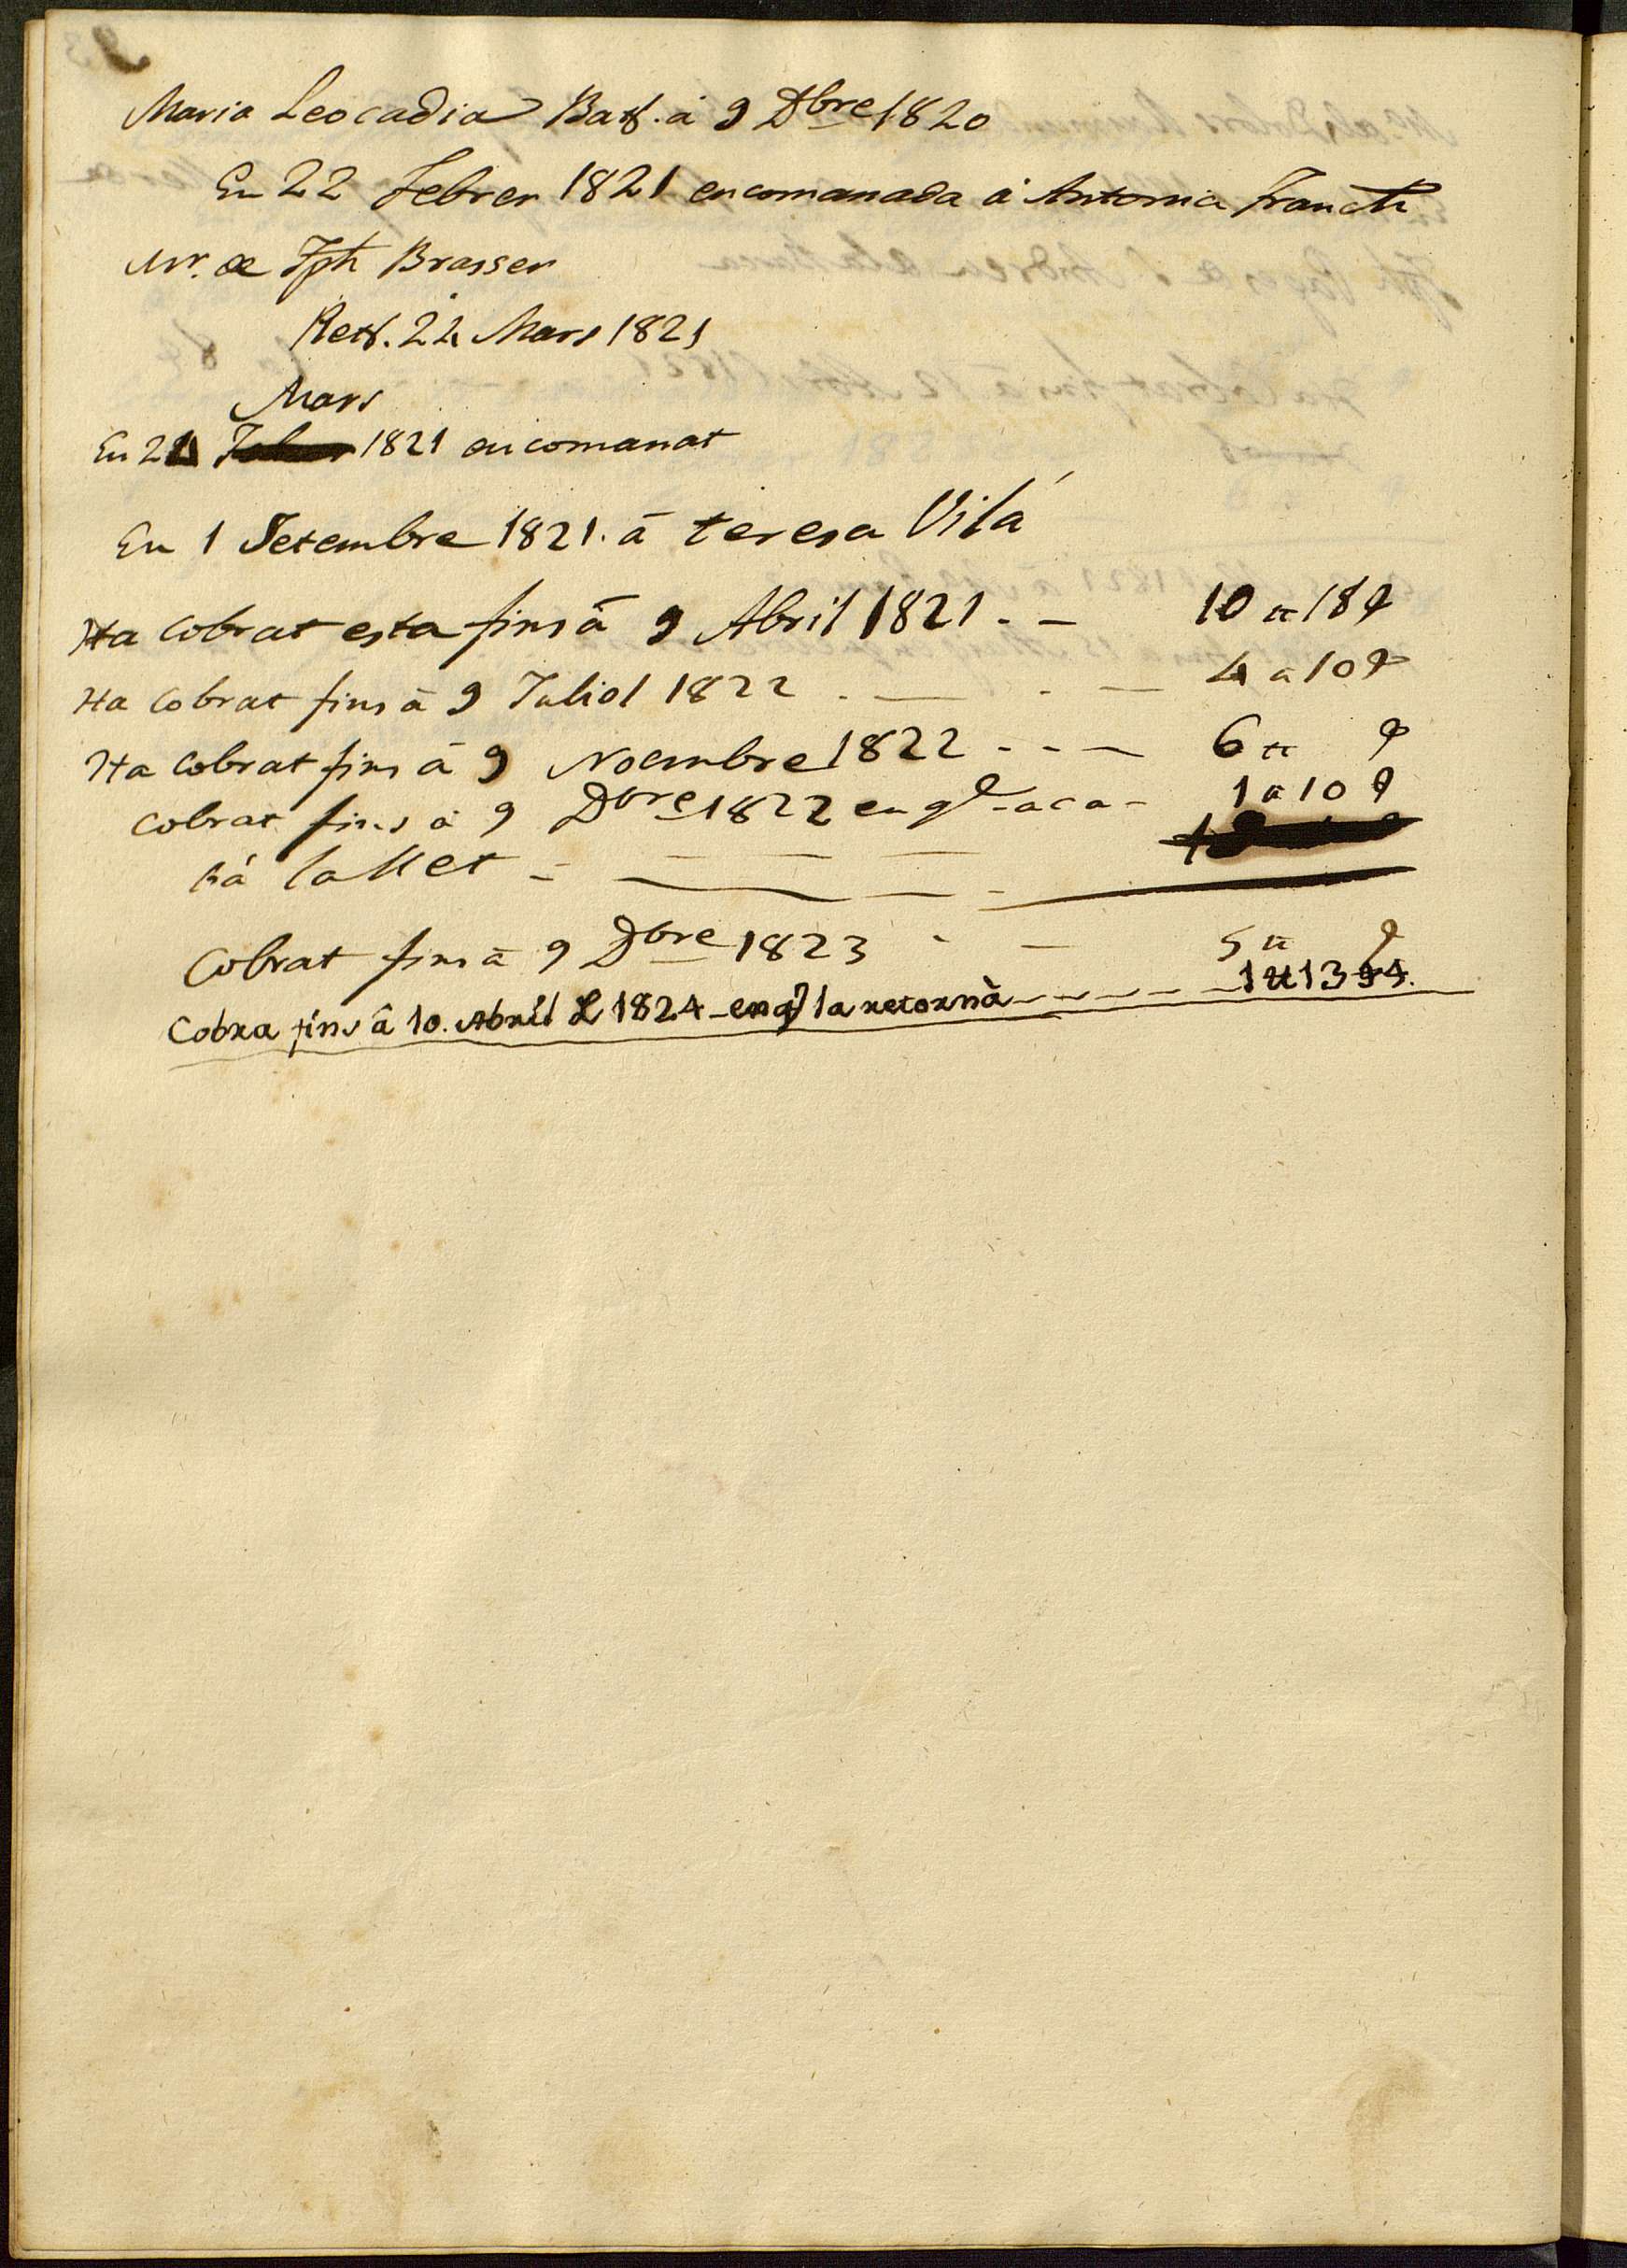 Maria Leocadia Bat. à 9 Dbre 1820
En 22 Febrer 1821 encomanada à Antonia Franch
Mr. de Jph Brasser
Ret. 24 Mars 1821
Mars
En 24 1821 encomanat
En 1 Setembre 1821. à teresa Vilá
Ha Cobrat esta fins à 9 Abril 1821 - - 10 ₶ 18
Ha Cobrat fins à 9 Juliol 1822 - - - - 4 ₶ 10
Ha Cobrat fins à 9 Noembre 1822 - - - 6 ₶
Cobrat fins à 9 Dbre 1822 en q - 1 ₶ 10
la llet - - - -
Cobrat fins à 9 Dbre 1823 - - 5 ₶
Cobra fins â 10. Abril 1824 - en q la retornà - - - - 1 ₶ 13